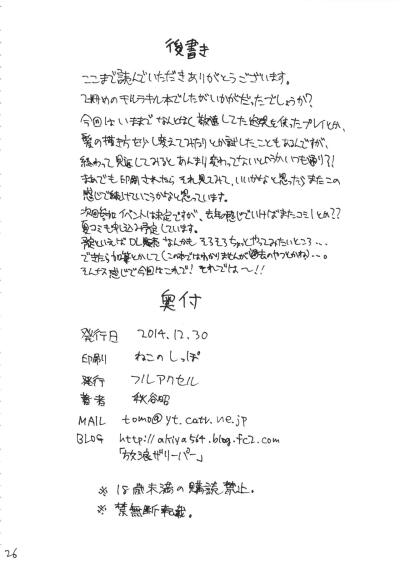 後書き
ここまで読んでいただきありがとうございます。
2冊めのキルラキル本でしたがいかがだったでしょうか?
今回はいままでなんとなく敬遠してた道具を使ったプレイとか、
髪の描き方を少し変えてみたりとか試したこともあるんですが、
終わって見返してみるとあんまり変わってないというかいつも通り?!
まぁでも印刷されたら それ見てみて、いいかなと思ったらまたこの
感じで続けていこうかなと思っています。
次回参加イベントは未定ですが、去年の感じでいけばまたコミ1とか??
夏コミも申し込み予定しています。
予定といえばDL販売なんかも そろそろちょっとやってみたいところ・・・
できたら加筆とかして(この本ではわかりませんが過去のやつとかね)・・・。
そんなカス感じで今回はこれで! それでは〜!!
奥付
発行日 2014.12.30
印刷 ねこのしっぽ
発行 フルアクセル
著者 秋谷昭
MAIL tomo@yt.catv.ne.jp
BLOG http://akiya564.blog.fc2.com
「放浪ザリーパー」
※ 18歳未満の購読禁止。
※ 禁無断転載。
26